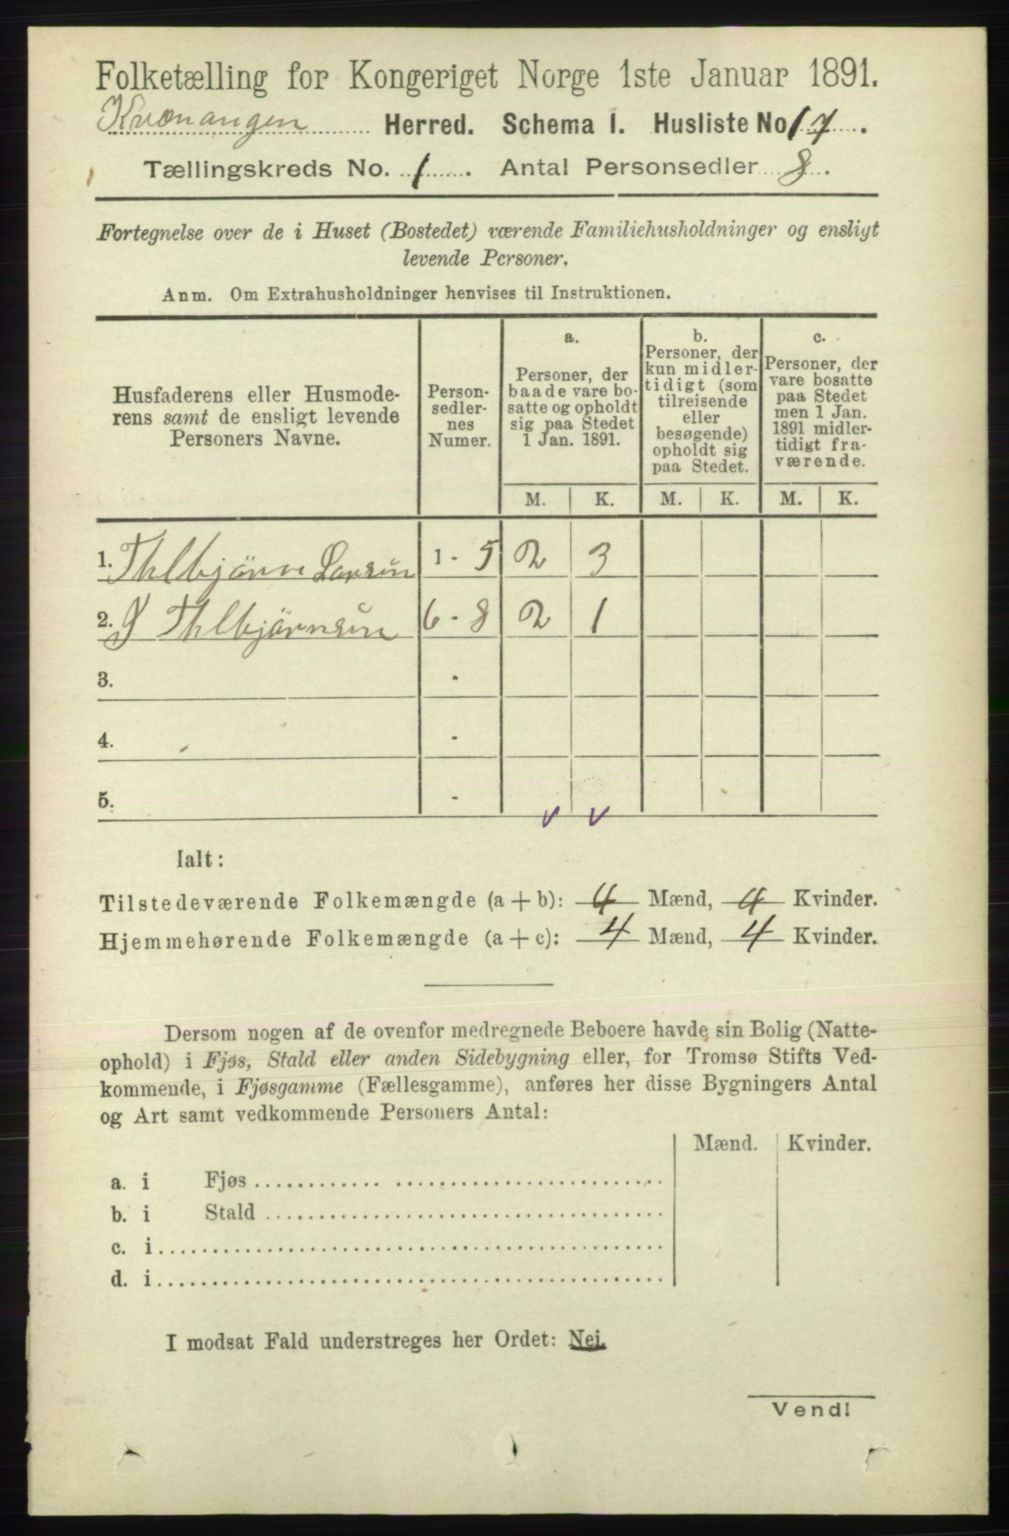 Folketælling for Kongeriget Norge 1ste Januar 1891.
Kvænangen Herred. Schema I. Husliste No 17.
Tællingskreds No. 1. Antal Personsedler 8.
Fortegnelse over de i Huset (Bostedet) værende Familiehusholdninger og ensligt
levende Personer.
Anm. Om Extrahusholdninger henvises til Instruktionen.
Husfaderens eller Husmode-
rens samt de ensligt levende
Personers Navne.
Person-
sedler-
nes
Numer.
a.
Personer, der
baade vare bo-
satte og opholdt
sig paa Stedet
1 Jan. 1891.
b.
Personer, der
kun midler-
tidigt (som
tilreisende
eller
besøgende)
opholdt sig
paa Stedet.
c.
Personer, der
vare bosatte
paa Stedet
men 1 Jan.
1891 midler-
tidigt fra-
værende.
M. K. M. K. M. K.
1. Thlbjörn Larsen 1 - 5 2 3
2. Thlbjörnsen 6 - 8 2 1
3. -
4. -
5. -
Ialt:
Tilstedeværende Folkemængde (a + b): 4 Mænd, 4 Kvinder.
Hjemmehørende Folkemængde (a + c): 4 Mænd, 4 Kvinder.
Dersom nogen af de ovenfor medregnede Beboere havde sin Bolig (Natte-
ophold) i Fjøs, Stald eller anden Sidebygning eller, for Tromsø Stifts Ved-
kommende, i Fjøsgamme (Fællesgamme), anføres her disse Bygningers Antal
og Art samt vedkommende Personers Antal:
Mænd. Kvinder.
a. i Fjøs
b. i Stald
c. i
d. i
I modsat Fald understreges her Ordet: Nei.
Vend!